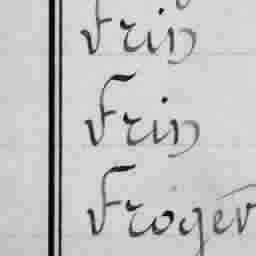 Frin
Frin
Froger